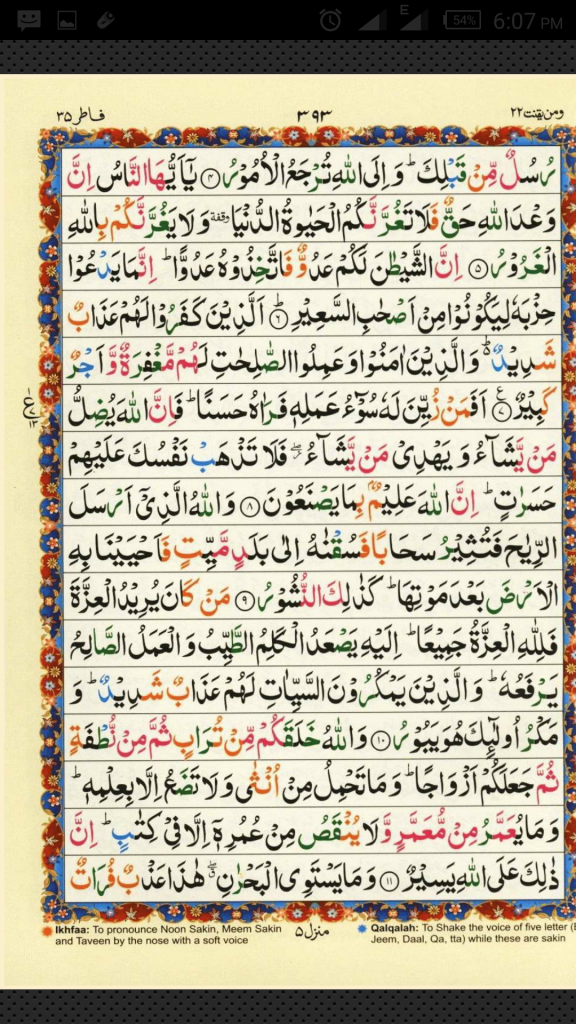 54% 6:07 PM
E
فاطر ۳۵ ۳۹۳ ومن یقنت ۲۲
رُسُلٌ مِّنْ قَبْلِكَ ؕ وَ اِلَى اللّٰهِ تُرْجَعُ الْاُمُوْرُ ﴿۴﴾ یٰۤاَیُّهَا النَّاسُ اِنَّ
وَعْدَ اللّٰهِ حَقٌّ فَلَا تَغُرَّنَّكُمُ الْحَیٰوةُ الدُّنْیَا ٝ وقفة وَ لَا یَغُرَّنَّكُمْ بِاللّٰهِ
الْغَرُوْرُ ﴿۵﴾ اِنَّ الشَّیْطٰنَ لَكُمْ عَدُوٌّ فَاتَّخِذُوْهُ عَدُوًّا ؕ اِنَّمَا یَدْعُوْا
حِزْبَهٗ لِیَكُوْنُوْا مِنْ اَصْحٰبِ السَّعِیْرِ ؕ ﴿۶﴾ اَلَّذِیْنَ كَفَرُوْا لَهُمْ عَذَابٌ
شَدِیْدٌ ۬ؕ وَ الَّذِیْنَ اٰمَنُوْا وَ عَمِلُوا الصّٰلِحٰتِ لَهُمْ مَّغْفِرَةٌ وَّ اَجْرٌ
كَبِیْرٌ ﴿۷﴾ ع اَفَمَنْ زُیِّنَ لَهٗ سُوْٓءُ عَمَلِهٖ فَرَاٰهُ حَسَنًا ؕ فَاِنَّ اللّٰهَ یُضِلُّ
ع ۷ ۱۳
مَنْ یَّشَآءُ وَ یَهْدِیْ مَنْ یَّشَآءُ ۖؗ فَلَا تَذْهَبْ نَفْسُكَ عَلَیْهِمْ
حَسَرٰتٍ ؕ اِنَّ اللّٰهَ عَلِیْمٌۢ بِمَا یَصْنَعُوْنَ ﴿۸﴾ وَ اللّٰهُ الَّذِیْۤ اَرْسَلَ
الرِّیٰحَ فَتُثِیْرُ سَحَابًا فَسُقْنٰهُ اِلٰى بَلَدٍ مَّیِّتٍ فَاَحْیَیْنَا بِهِ
الْاَرْضَ بَعْدَ مَوْتِهَا ؕ كَذٰلِكَ النُّشُوْرُ ﴿۹﴾ مَنْ كَانَ یُرِیْدُ الْعِزَّةَ
فَلِلّٰهِ الْعِزَّةُ جَمِیْعًا ؕ اِلَیْهِ یَصْعَدُ الْكَلِمُ الطَّیِّبُ وَ الْعَمَلُ الصَّالِحُ
یَرْفَعُهٗ ؕ وَ الَّذِیْنَ یَمْكُرُوْنَ السَّیِّاٰتِ لَهُمْ عَذَابٌ شَدِیْدٌ ؕ وَ
مَكْرُ اُولٰٓىِٕكَ هُوَ یَبُوْرُ ﴿۱۰﴾ وَ اللّٰهُ خَلَقَكُمْ مِّنْ تُرَابٍ ثُمَّ مِنْ نُّطْفَةٍ
ثُمَّ جَعَلَكُمْ اَزْوَاجًا ؕ وَ مَا تَحْمِلُ مِنْ اُنْثٰى وَ لَا تَضَعُ اِلَّا بِعِلْمِهٖ ؕ
وَ مَا یُعَمَّرُ مِنْ مُّعَمَّرٍ وَّ لَا یُنْقَصُ مِنْ عُمُرِهٖۤ اِلَّا فِیْ كِتٰبٍ ؕ اِنَّ
ذٰلِكَ عَلَى اللّٰهِ یَسِیْرٌ ﴿۱۱﴾ وَ مَا یَسْتَوِی الْبَحْرٰنِ ۖۗ هٰذَا عَذْبٌ فُرَاتٌ
Ikhfaa: To pronounce Noon Sakin, Meem Sakin
and Taveen by the nose with a soft voice
منزل ۵
Qalqalah: To Shake the voice of five letter (
Jeem, Daal, Qa, tta) while these are sakin